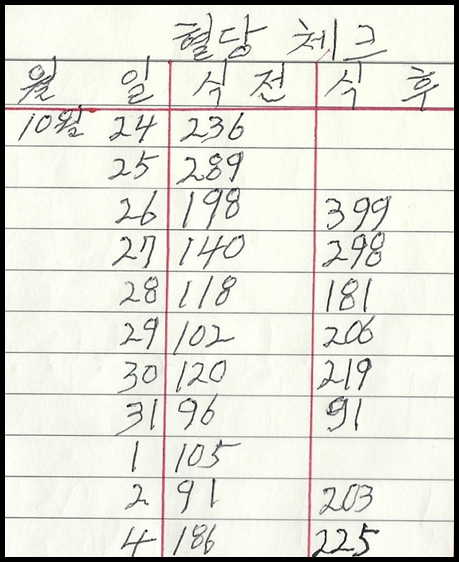 혈당 체크
월 일 식전 식후
10월 24 236
25 289
26 198 399
27 140 298
28 118 181
29 102 206
30 120 219
31 96 91
1 105
2 91 203
4 186 225